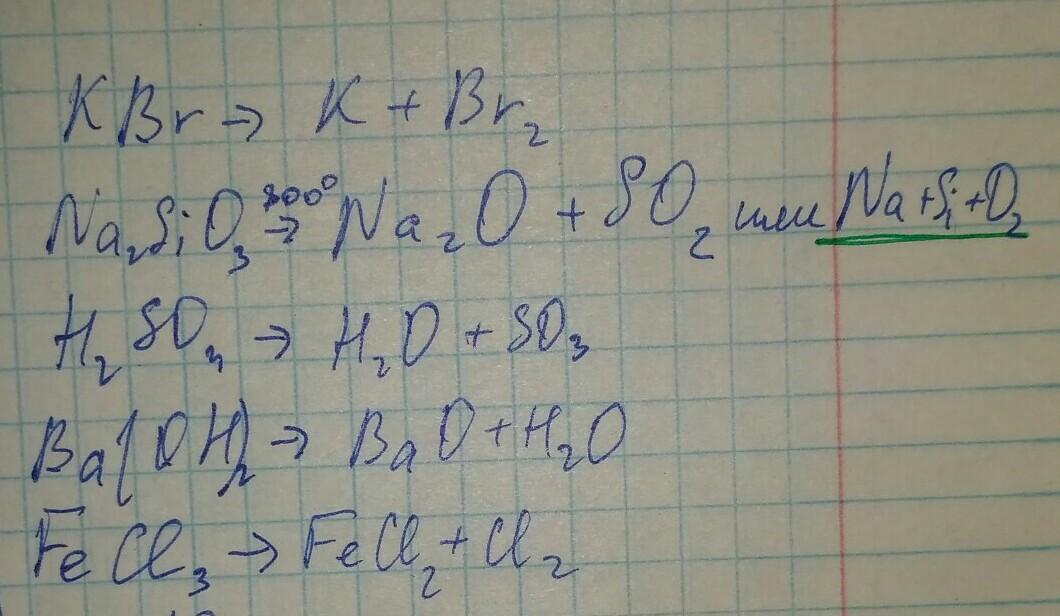 KBr → K + Br₂
Na₂SiO₃ 800° → Na₂O + SO₂ или Na+Si+O₂
H₂SO₄ → H₂O + SO₃
Ba(OH)₂ → BaO+H₂O
FeCl₃ → FeCl₂+Cl₂